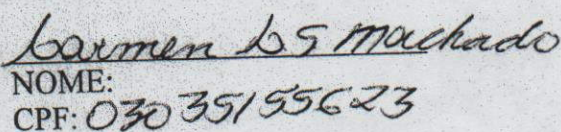 Carmen L S Machado
NOME:
CPF: 03035155623